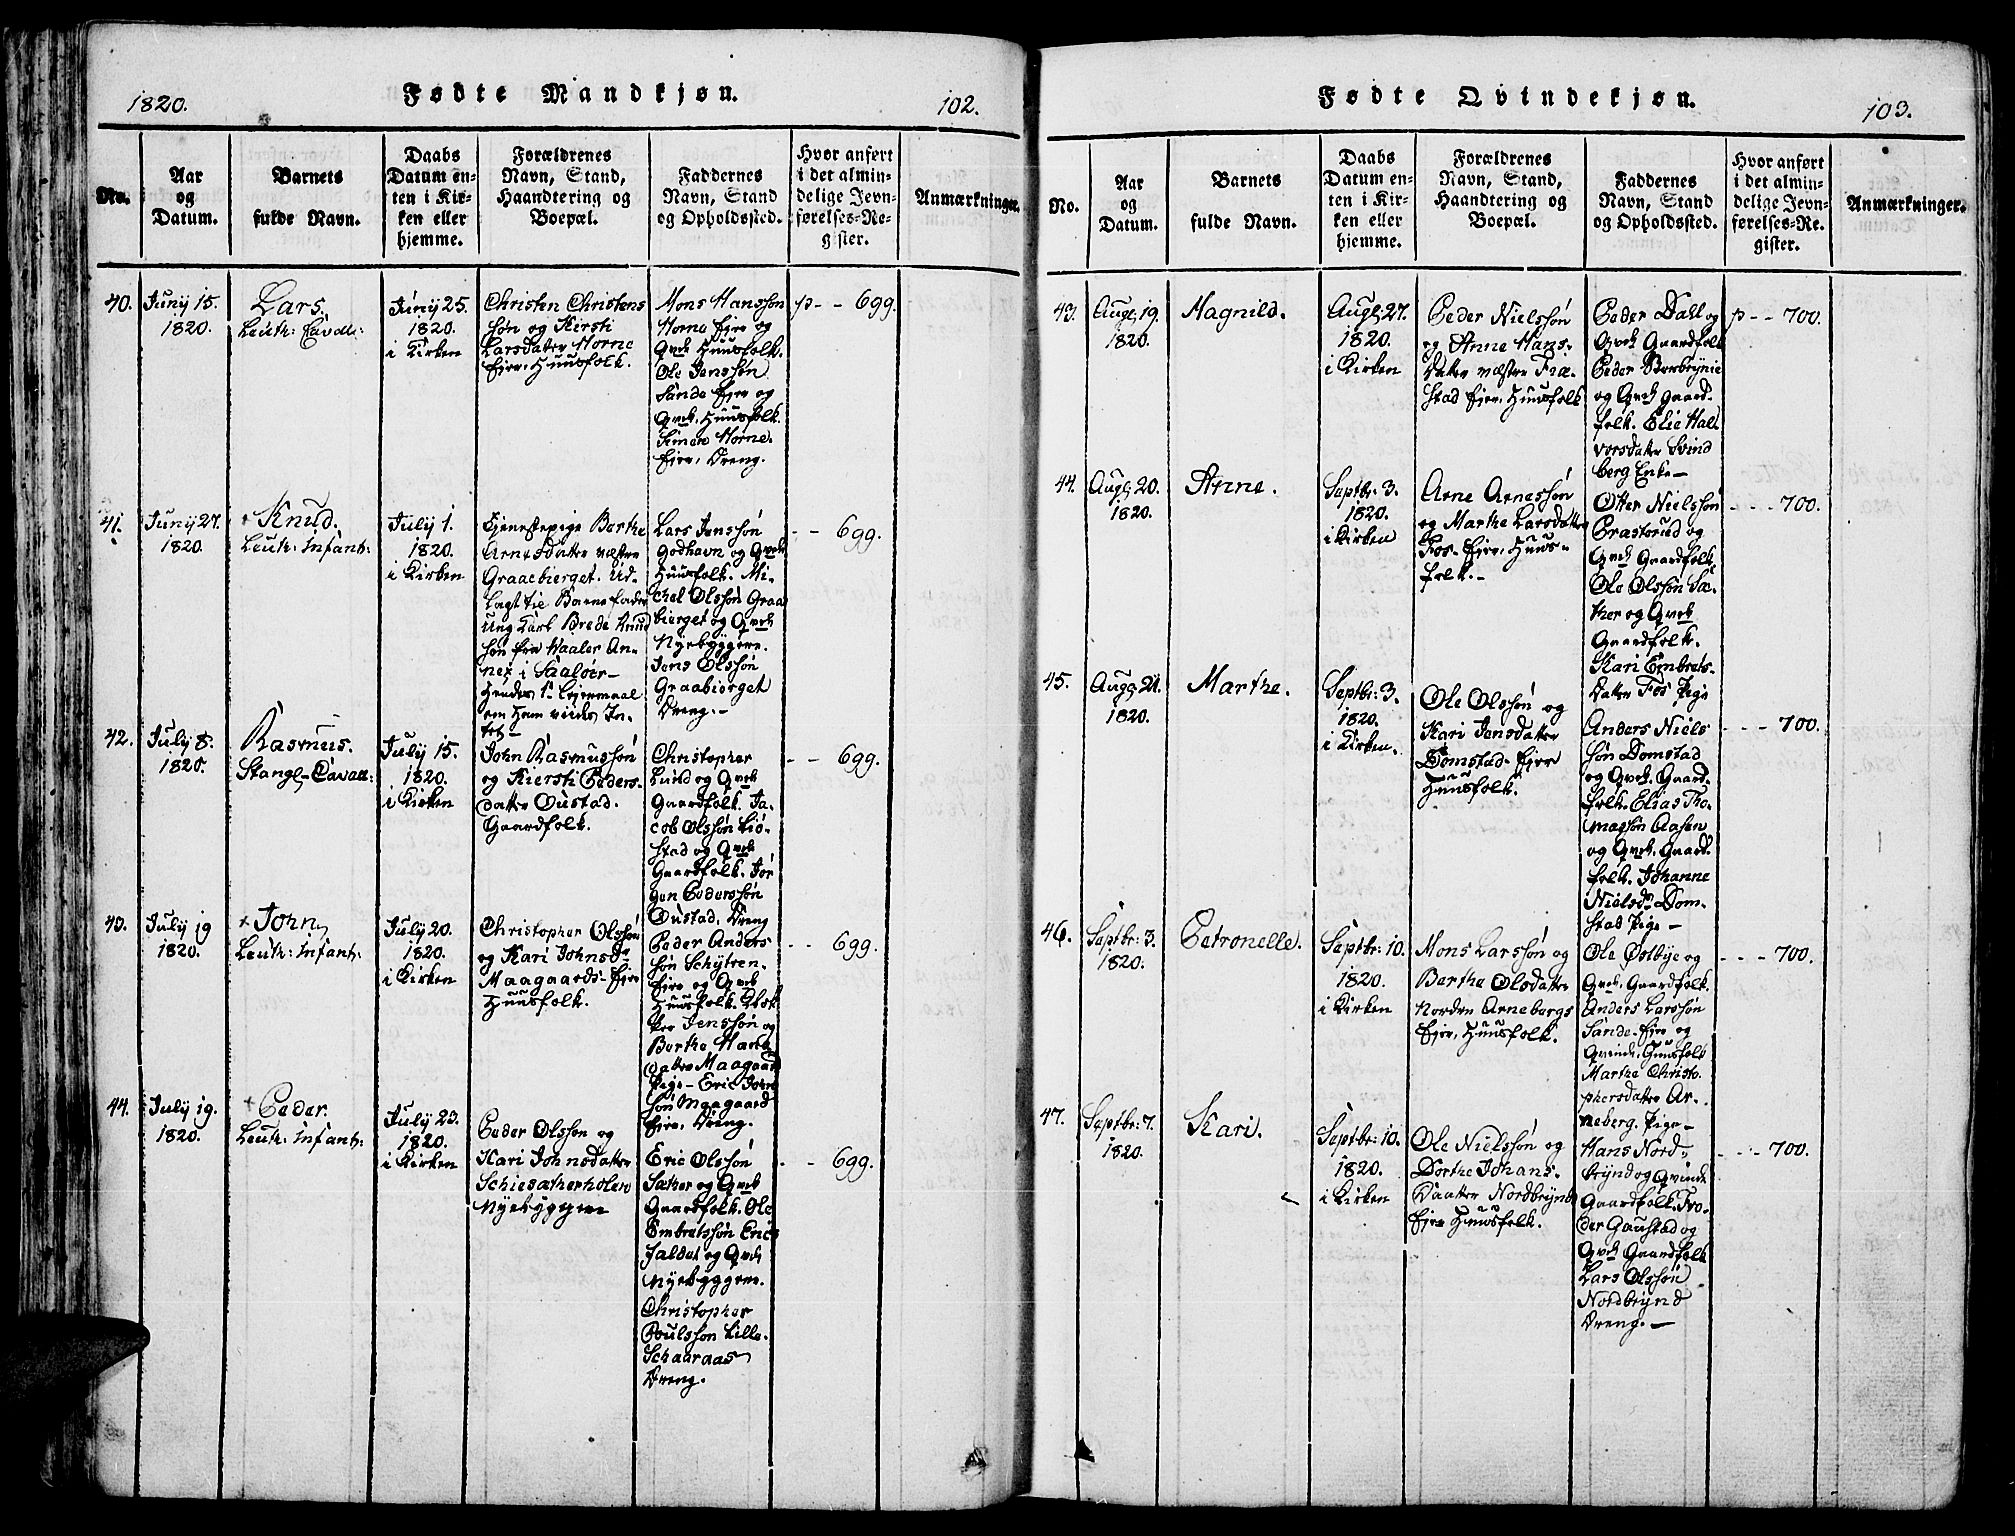 1820.
Fødte Mandkjøn.
102.
No.
Aar
og
Datum.
Barnets
fulde Navn.
Daabs
Datum en-
ten i Kir-
ken eller
hjemme.
Forældrenes
Navn, Stand,
Haandtering og
Boepæl.
Faddernes
Navn, Stand
og Opholdssted.
Hvor anført
i det almin-
delige Jevn-
førelses-Re-
gister.
Anmærkninger.
40.
Juny 15.
1820.
Lars.
Leuth: Cavall:
Juny 25.
1820.
i Kirken
Christen Christens
søn og Kirsti
Larsdatter Horne
Eier. Huusfolk.
Mons Hanssøn
Horne Eier og
Qvek Huusfolk.
Ole Jenssøn
Sande Eier og
Qvek. Huusfolk.
Simen Horne-
Eier, Dreng.
p - - 699.
41.
Juny 27.
1820.
+ Knud.
Leuth: Infant:
July 1.
1820.
i Kirken
Tjenestepige Berthe
Arnesdatter væstre
Graaebierget. Ud-
lagt til Barnefader
Ung Karl Brede Knud
søn fra Vaaler An-
nex i Soløer-
Hendes 1te Leiermaal
om Ham vides In-
tet-
Lars Jenssøn
Godhavn og Qvek
Huusfolk. Mi-
chel Olssøn Graa
bierget og Qvek
Nyebyggere.
Jens Olssøn
Graabierget
Dreng.-
- - 699.
42.
July 8.
1820.
Rasmus.
Stangl-Cavall:
July 15.
1820.
i Kirken
John Rasmussøn
og Kiersti Peders-
datter Oustad.
Gaardfolk.
Christopher
Lund og Qvek
Gaardfolk. Ja-
cob Olssøn Kiø-
stad og Qvek
Gaardfolk. Jør
gen Pederssøn
Oustad. Dreng
- - 699.
43.
July 19
1820.
+ John
Leuth: Infant:
July 20.
1820.
i Kirken
Christopher Olssøn
og Kari Johnsdr
Maagaards-Eier
Huusfolk.
Peder Anders
søn Schytren-
Eier og Qvek
Huusfolk. Pet
ter Jenssøn og
Berthe Hans
datter Maagaard
Pige - Eric John
søn Maagaard
Eier, Dreng.
- - 699.
44.
July 19.
1820.
+ Peder.
Leuth: Infant:
July 23.
1820.
i Kirken
Peder Olssøn og
Kari Johnsdatter
Schiesætherholen
Nyebyggere
Eric Olssøn
Sæther og Qvek
Gaardfolk. Ole
Embretssøn Erics
faldet og Qvek
Nyebyggere.
Christopher
Poulssøn Lille-
Schaaraas
Dreng.
- - 699.
Fødte Qvindekjøn.
103.
No.
Aar
og
Datum.
Barnets
fulde Navn.
Daabs
Datum en-
ten i Kir-
ken eller
hjemme.
Forældrenes
Navn, Stand,
Haandtering og
Boepæl.
Faddernes
Navn, Stand
og Opholdssted.
Hvor anført
i det almin-
delige Jevn-
førelses-Re-
gister.
Anmærkninger.
43.
Augl; 19.
1820.
Magnild.
Augl; 27.
1820.
i Kirken
Peder Nielssøn
og Anne Hans-
Datter væstre Fræ-
stad Eier. Huusfolk
Peder Dahl og
Qvek Gaardfolk
Peder Berbrynie
og Qvek Gaard-
folk. Elie Hal
vorsdatter Svind
berg Enke -
p - - 700.
44.
Augl; 20.
1820.
Anne.
Septbr: 3.
1820.
i Kirken
Arne Arnessøn
og Marthe Larsdatter
Fos-Eier. Huus-
folk.-
Otter Nielssøn
Præsterud og
Qvek Gaardfolk.
Ole Olssøn Sæ-
ther og Qvek
Gaardfolk.
Kari Embrets-
Datter Fos Pige
- - - 700.
45.
Augl; 21.
1820.
Marthe.
Septbr: 3.
1820.
i Kirken.
Ole Olssøn og
Kari Jensdatter
Domstad-Eier
Huusfolk.
Anders Niels
søn Domstad
og Qvek. Gaard-
folk. Elias Tho-
massøn Aasen
og Qvek. Gaard-
folk. Johanne
Nielsdr Dom-
stad Pige -
- - - 700.
46.
Septbr: 3.
1820.
Petronelle.
Septbr: 10.
1820.
i Kirken
Mons Larssøn og
Berthe Olsdatter
Nordre Arnebergs
Eier. Huusfolk.
Ole Østbye og
Qvek. Gaardfolk.
Anders Larssøn
Sande-Eier og
Qvinde. Huusfolk
Marthe Christo-
phersdatter Ar-
neberg. Pige-
- - - 700.
47.
Septbr: 7.
1820.
Kari.
Septbr: 10.
1820.
i Kirken
Ole Nielssøn og
Dorthe Johans-
Daatter Nordbrynd
Eier Huusfolk.
Hans Nord-
brynd og Qvinde
Gaardfolk. Fro-
der Gaustad og
Qvek Gaardfolk
Lars Olssøn
Nordbrynd
Dreng. -
- - - 700.